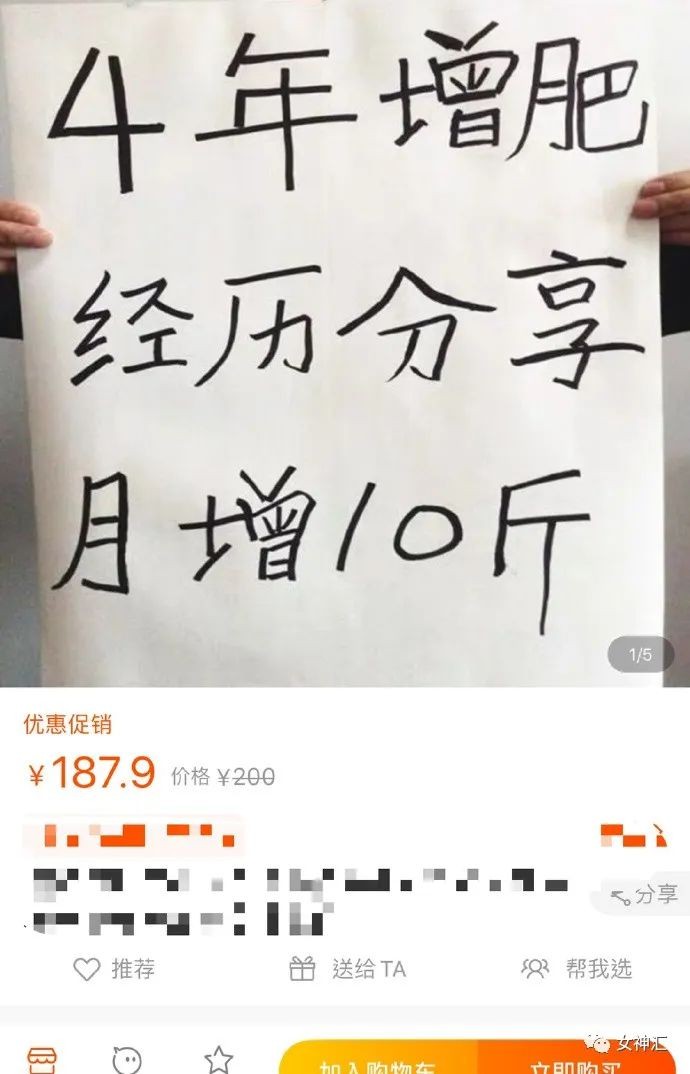 4年增肥
经历分享
月增10斤
1/5
优惠促销
¥187.9 价格 ¥200
分享
推荐 送给TA 帮我选
女神汇
加入购物车 立即购买